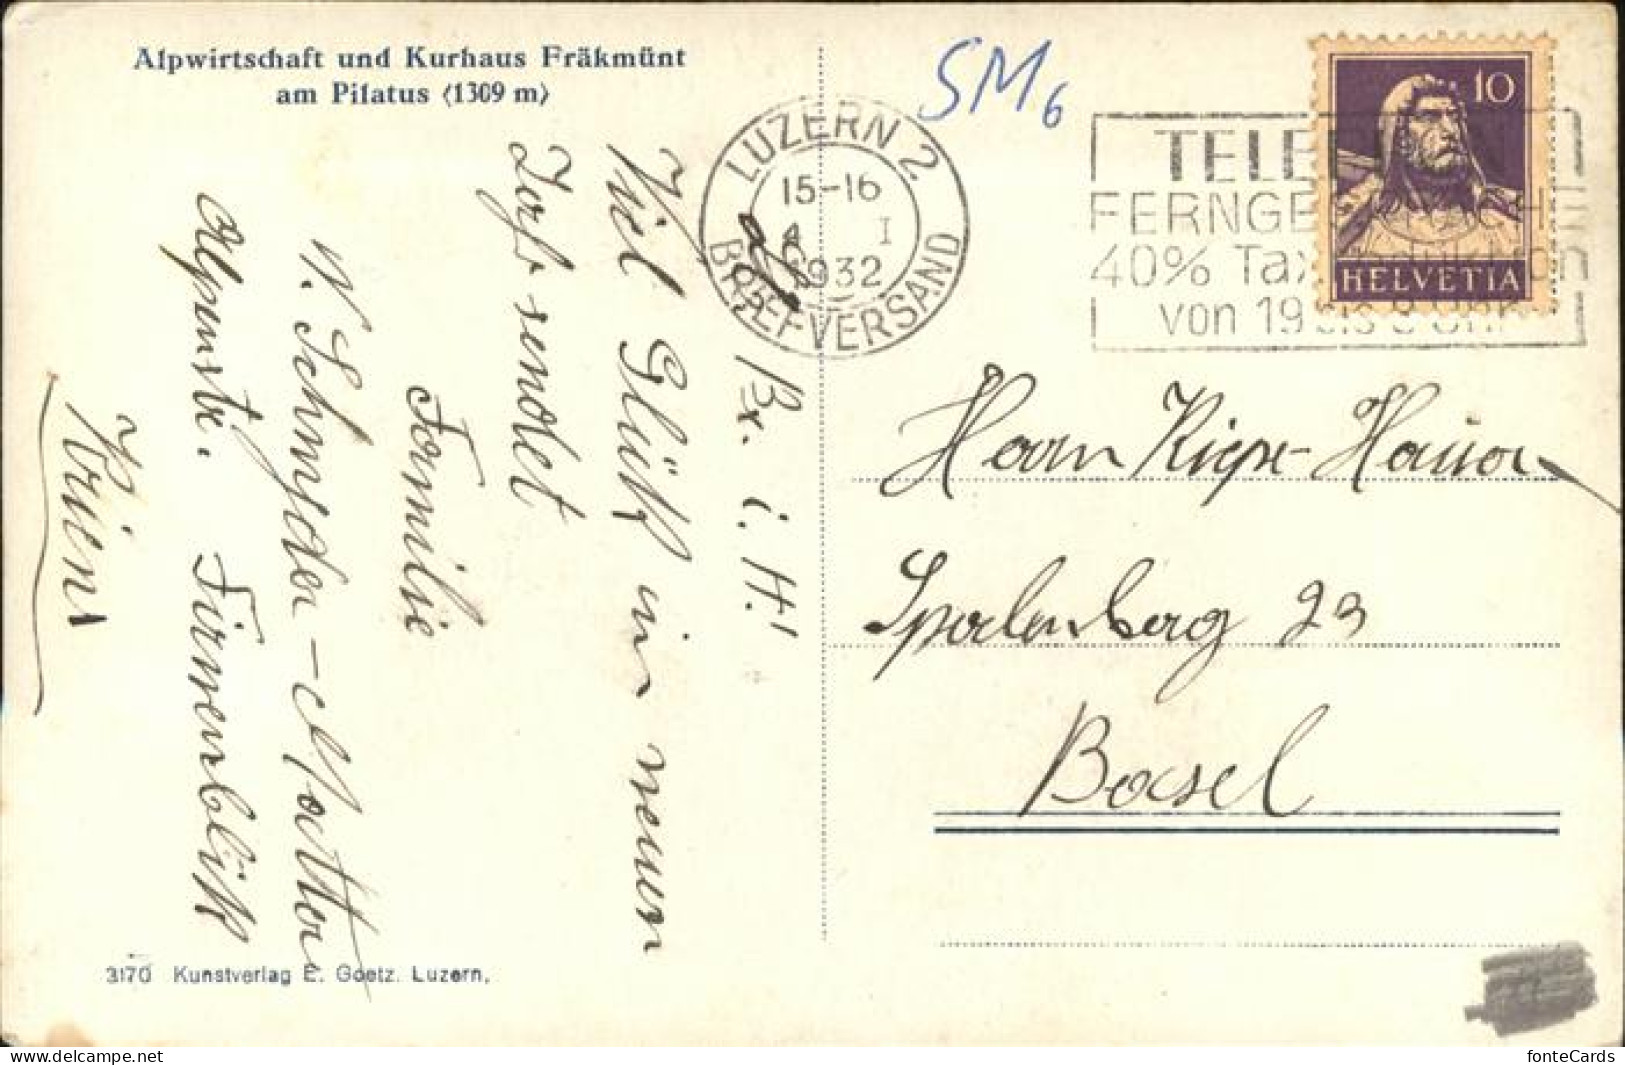 Alpwirtschaft und Kurhaus Fräkmünt
am Pilatus (1309 m)
SM6
LUZERN 2
15-16
4 I
1932
BRIEFVERSAND
TELE
FERNGE
40% Tax
von 19 bis 8 Uhr
10
HELVETIA
Br. i. H.!
Viel Glück im neuen
Jahr sendet
Familie
N. Schnyder-Matter
Alpenstr. Firnenblick
Kriens
Herrn Kiepe-Hauser
Spalenberg 23
Basel
3170 Kunstverlag E. Goetz. Luzern.
fonteCards